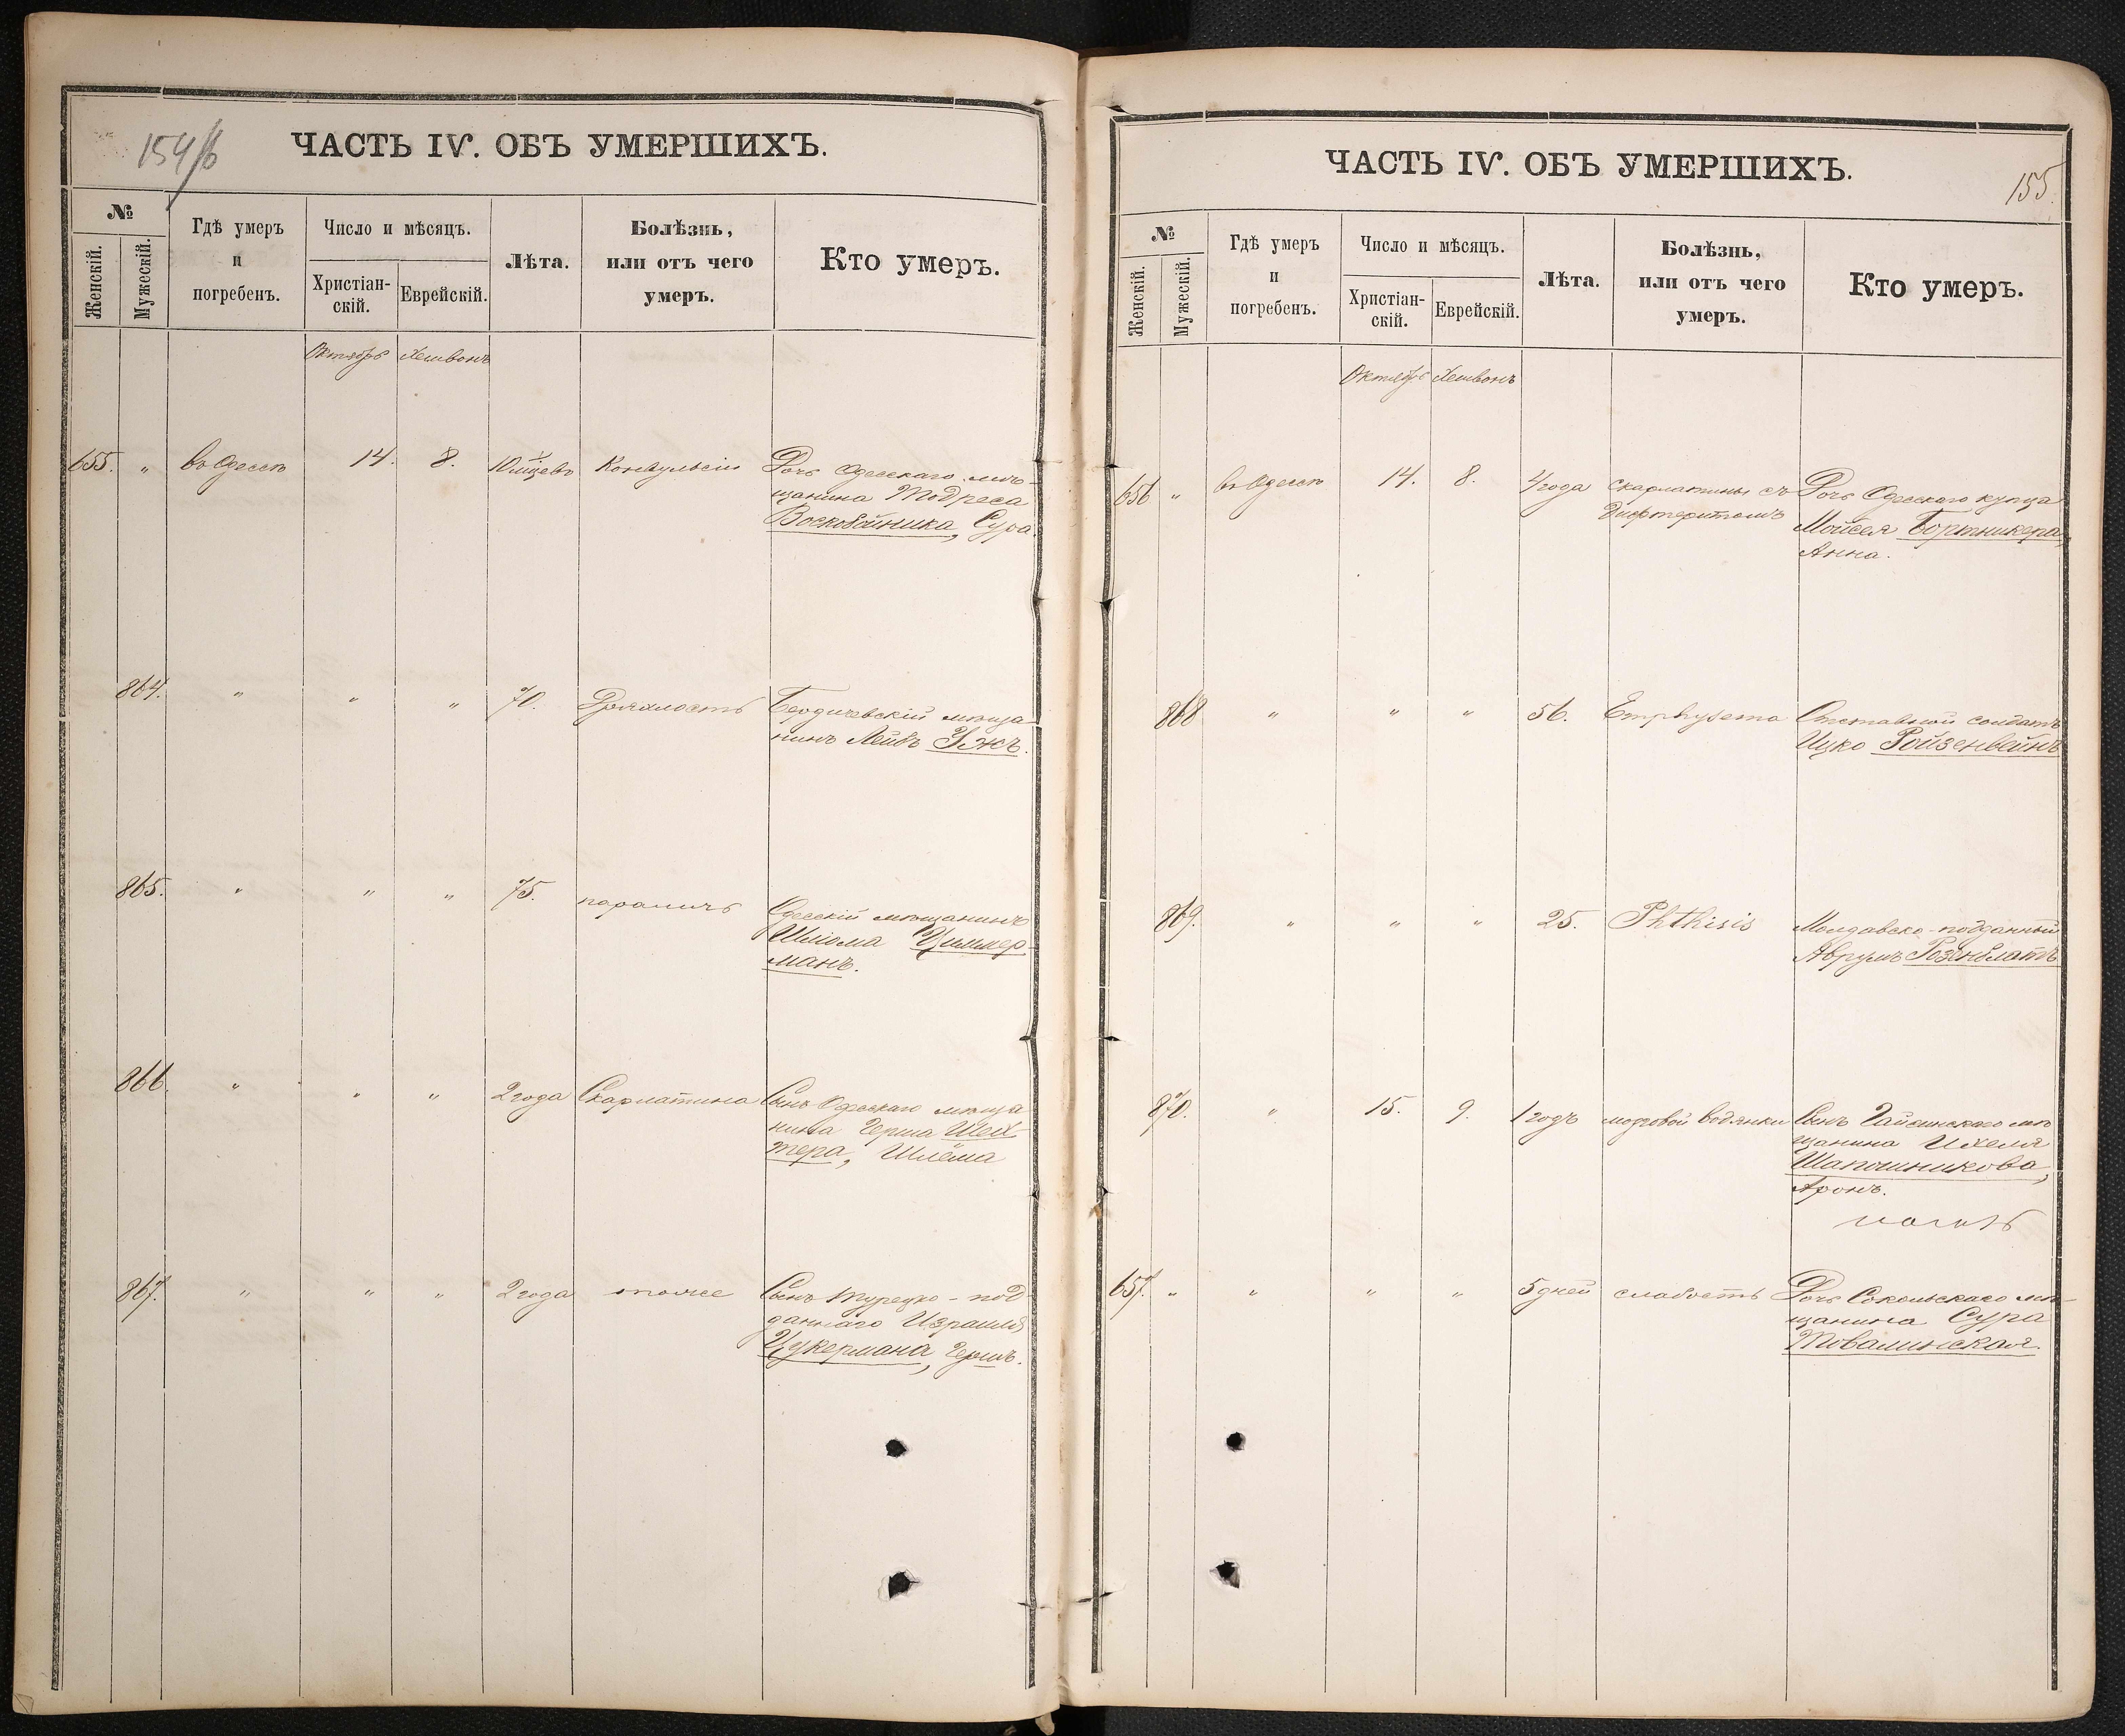 154/б
ЧАСТЬ IV. ОБЪ УМЕРШИХЪ.
№
Женскій.
Мужескій.
Гдѣ умеръ
и
погребенъ.
Число и мѣсяцъ.
Христіан-
скій.
Еврейскій.
Лѣта.
Болѣзнь,
или отъ чего
умеръ.
Кто умеръ.
Октябрь Хешвонъ
655. " въ Одессѣ 14. 8. Конвульсіи Дочь Одесскаго мѣ-
щанина Тодреса
Воскобойника, Сура.
864. " " " 70. Дряхлость Бердичевскій мѣща-
нинъ Лейбъ Ужъ.
865. " " " 75. параличъ Одесскій мѣщанинъ
Шліома Циммер-
манъ.
866. " " " 2 года Скарлатина Сынъ Одесскаго мѣща
нина Герша Шех-
тера, Шлёма
867. " " " 2 года тоже Сынъ Турецко-под
даннаго Израиля
Цукермана, Гершъ.
ЧАСТЬ IV. ОБЪ УМЕРШИХЪ.
155.
№
Женскій.
Мужескій.
Гдѣ умеръ
и
погребенъ.
Число и мѣсяцъ.
Христіан-
скій.
Еврейскій.
Лѣта.
Болѣзнь,
или отъ чего
умеръ.
Кто умеръ.
Октябрь Хешвонъ
656 " въ Одессѣ 14. 8. 4 года Скарлатины съ Дочь Одесскаго купца
Дифтеритомъ Мойсея Бортникера,
Анна.
868 " " " 56. Emphysema Отставной солдатъ
Ицко Ройзенвейнъ
869. " " " 25. Phthisis Молдавско-подданный
Аврумъ Розенблатъ
870. " 15. 9. 1 годъ мозговой водянки Сынъ Гайсинскаго мѣ
щанина Ихеля
Шапошникова,
Аронъ.
657. " " " " 5 дней слабость Дочь Сокольскаго мѣ-
щанина Сура
Товалинская.